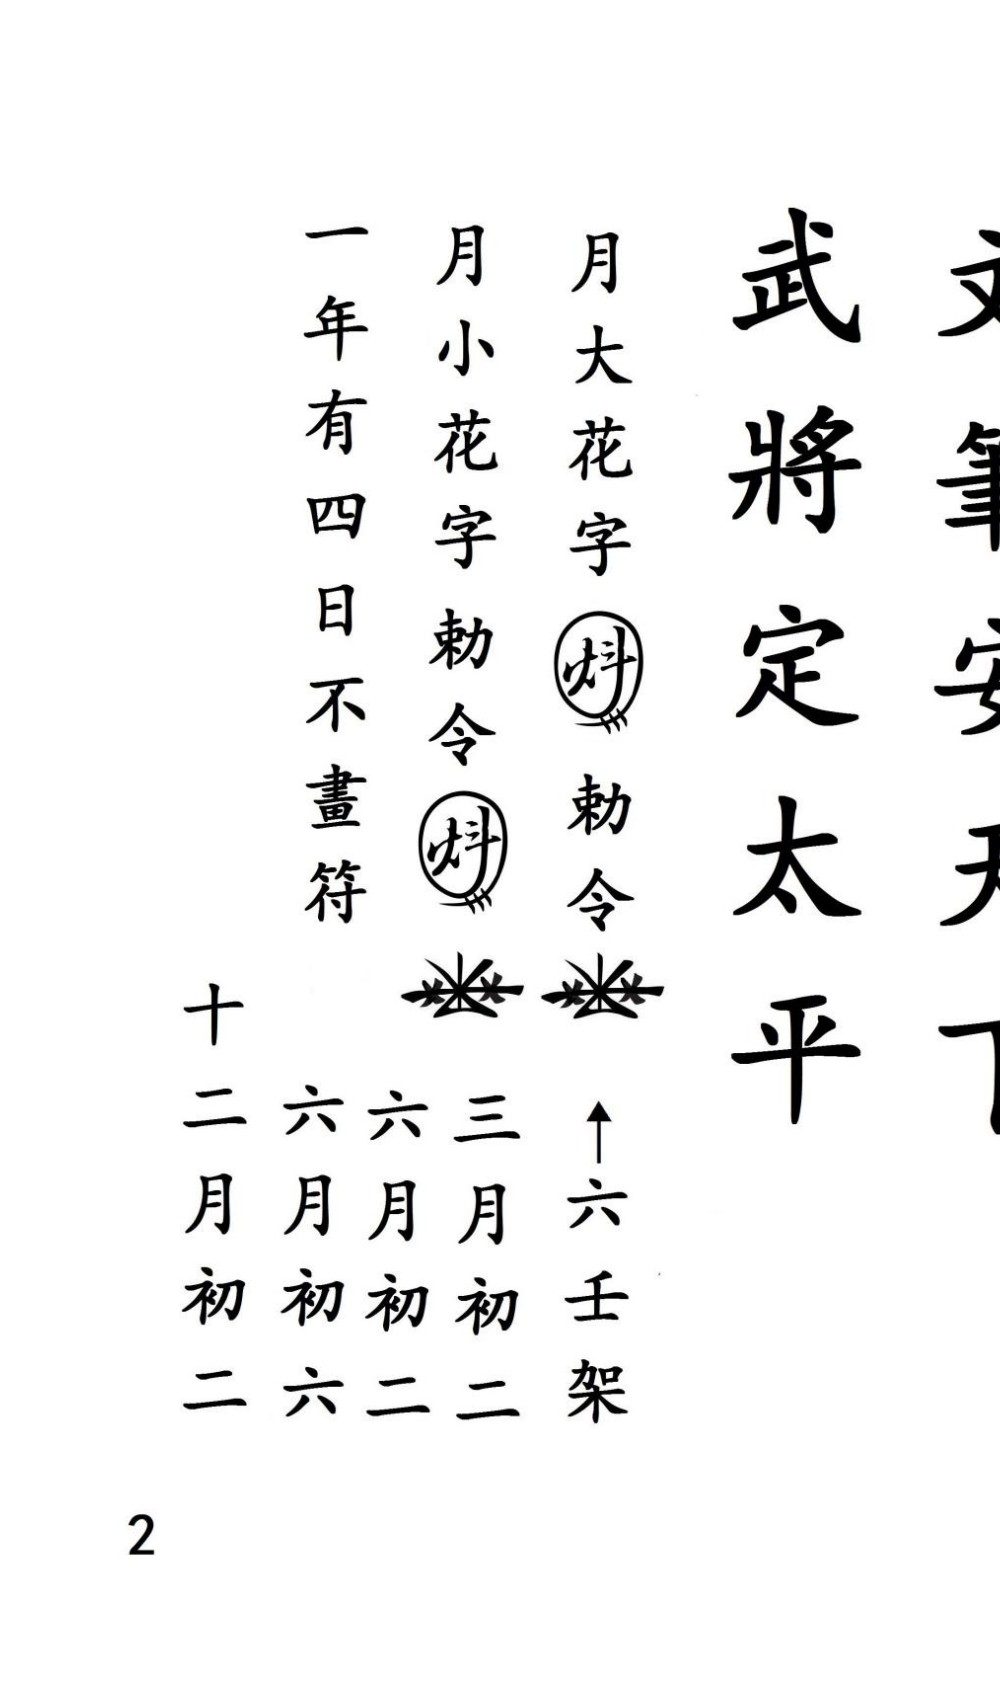 文筆安天下
武將定太平
月大花字 㪷 勅令
六壬架
月小花字勅令 㪷
一年有四日不畫符
三月初二
六月初二
六月初六
十二月初二
2